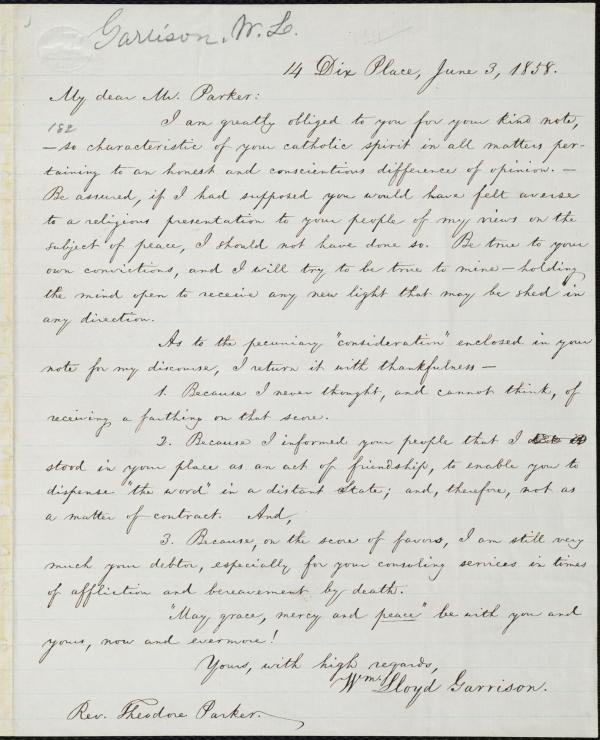 Garrison, W. L.
14 Dix Place, June 3, 1858.
My dear Mr. Parker:
182
I am greatly obliged to you for your kind note,
— so characteristic of your catholic spirit in all matters per-
taining to an honest and conscientious difference of opinion. —
Be assured, if I had supposed you would have felt averse
to a religious presentation to your people of my views on the
subject of peace, I should not have done so. Be true to your
own convictions, and I will try to be true to mine — holding
the mind open to receive any new light that may be shed in
any direction.
As to the pecuniary "consideration" enclosed in your
note for my discourse, I return it with thankfulness —
1. Because I never thought, and cannot think, of
receiving a farthing on that score.
2. Because I informed your people that I
stood in your place as an act of friendship, to enable you to
dispense "the word" in a distant State; and, therefore, not as
a matter of contract. And,
3. Because, on the score of favors, I am still very
much your debtor, especially for your consoling services in times
of affliction and bereavement by death.
"May grace, mercy and peace" be with you and
yours, now and evermore!
Yours, with high regards,
Wm. Lloyd Garrison.
Rev. Theodore Parker.